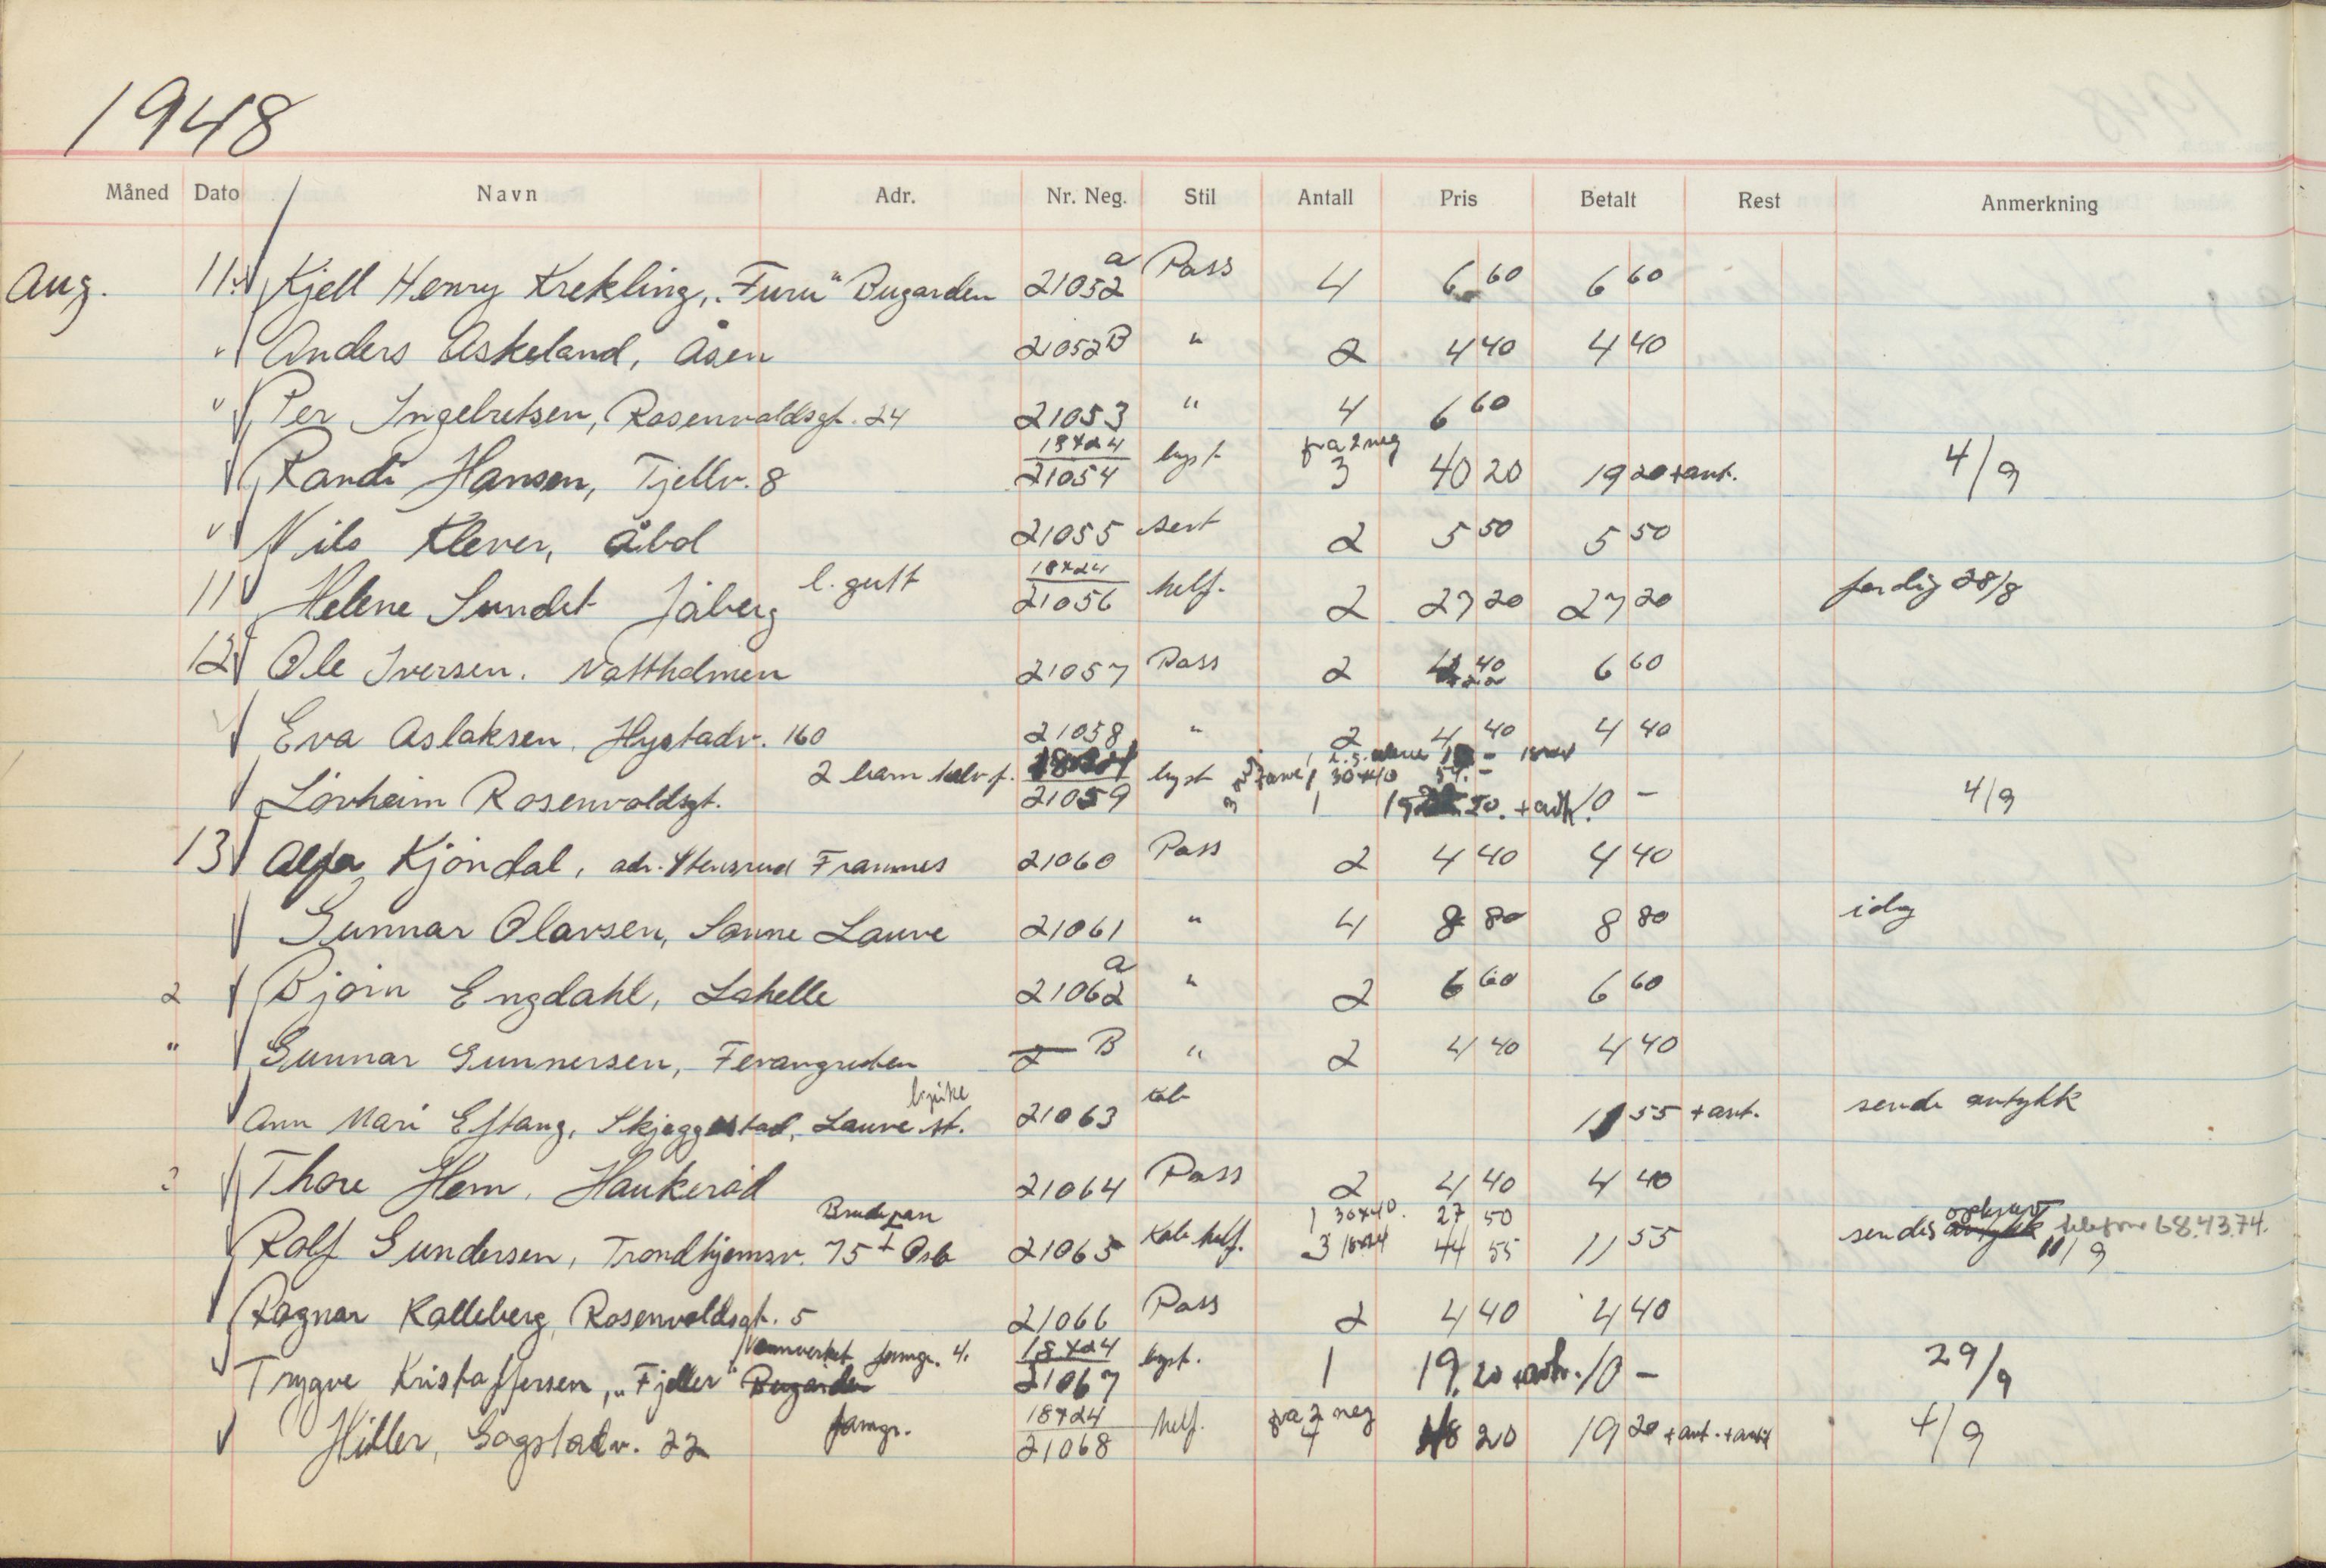 1948
Måned Dato Navn Adr. Nr. Neg. Stil Antall Pris Betalt Rest Anmerkning
Aug. 11. Kjell Henry Krekling, "Furu" Bugarden 21052 a Pass 4 6 60 6 60
" Anders Askeland, Åsen 21052 B " 2 4 40 4 40
" Per Ingebretsen, Rosenvoldsgt. 24 21053 " 4 6 60
Randi Hansen, Tjellv. 8 18x24 21054 byst fra 2 neg 3 40 20 19 20 + ant. 4/9
" Nils Klever, Åbol 21055 sert 2 5 50 5 50
11 Helene Sundet Jåberg l. gutt 18x24 21056 helf. 2 27 20 27 20 ferdig 28/8
12 Ole Iversen. Nattholmen 21057 Pass 2 4 40 6 60
Eva Aslaksen, Hystadv. 160 21058 " 2 4 40 4 40
Lövheim Rosenvoldsgt. 2 barn halv f. 18x24 21059 byst 1 30x40 1 + ant. 10 - 4/9
13 Alfa Kjöndal, adr. Stensrud Framnes 21060 Pass 2 4 40 4 40
Gunnar Olavsen, Sanne Lauve 21061 " 4 8 80 8 80 idag
2 Björn Engdahl, Lahelle 21062 a " 2 6 60 6 60
" Gunnar Gunnersen, Fevangrutten 2 B " 2 4 40 4 40
Ann Mari Eftang, Skjeggestad, Lauve st. l. pike 21063 Kab 11 55 + ant. sende avtykk
Thore Hem, Haukeröd 21064 Pass 2 4 40 4 40
Rolf Gundersen, Trondhjemsv. 75 I Oslo Brudepar 21065 Kab helf. 1 30x40. 27 50 3 18x24 44 55 11 55 sendes avtykk telefon 68.43.74. 11/9
Ragnar Kalleberg, Rosenvoldsgt. 5 21066 Pass 2 4 40 4 40
Trygve Kristoffersen, "Fjeller" Bugarden famgr. 4. 18x24 21067 byst. 1 19. 20 + ant. 10 - 29/9
Hiller, Gogstadv. 22 famgr. 18x24 21068 helf. fra 2 neg 4 48 20 19 20 + ant. + ant 4/9